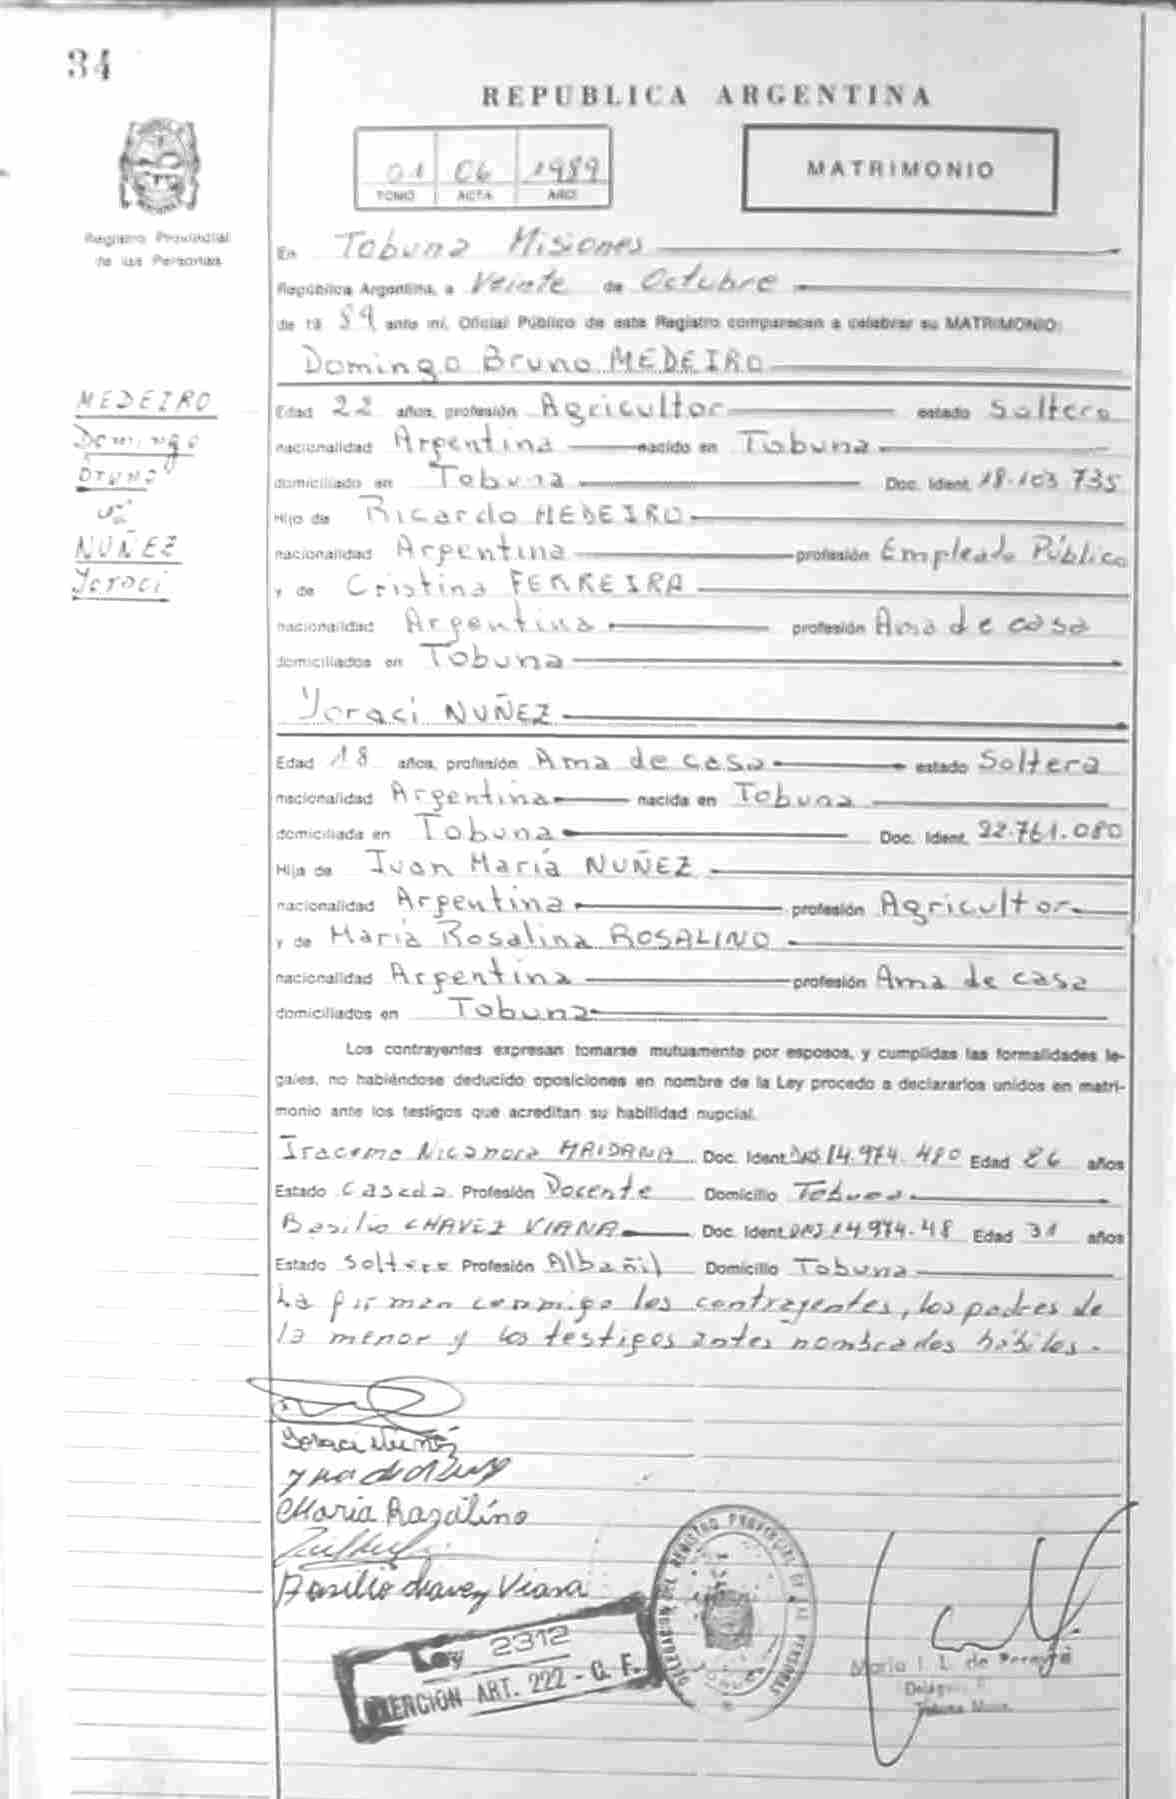 34
REPUBLICA ARGENTINA
01 06 1989
TOMO ACTA AÑO
MATRIMONIO
Registro Provincial
de las Personas
En Tobuna Misiones
República Argentina, a Veinte de Octubre
de 19 89 ante mí, Oficial Público de este Registro comparecen a celebrar su MATRIMONIO:
Domingo Bruno MEDEIRO
MEDEIRO
Domingo
Bruno
NUÑEZ
Yoraci
Edad 22 años, profesión Agricultor estado Soltero
nacionalidad Argentina nacido en Tobuna
domiciliado en Tobuna Doc. Ident. 18.103.735
Hijo de Ricardo MEDEIRO
nacionalidad Argentina profesión Empleado Público
y de Cristina FERREIRA
nacionalidad Argentina profesión Ama de casa
domiciliados en Tobuna
Yoraci NUÑEZ
Edad 18 años, profesión Ama de casa estado Soltera
nacionalidad Argentina nacida en Tobuna
domiciliada en Tobuna Doc. Ident. 22.761.080
Hija de Juan María NUÑEZ
nacionalidad Argentina profesión Agricultor
y de María Rosalina ROSALINO
nacionalidad Argentina profesión Ama de casa
domiciliados en Tobuna
Los contrayentes expresan tomarse mutuamente por esposos, y cumplidas las formalidades le-
gales, no habiéndose deducido oposiciones en nombre de la Ley procedo a declararlos unidos en matri-
monio ante los testigos que acreditan su habilidad nupcial.
Iracema Nicanora MAIDANA Doc. Ident. DNI 14.974.480 Edad 26 años
Estado Casada Profesión Docente Domicilio Tobuna
Basilio CHAVEZ VIANA Doc. Ident. DNI 14.974.48 Edad 31 años
Estado Soltero Profesión Albañil Domicilio Tobuna
La firman conmigo los contrayentes, los padres de
la menor y los testigos antes nombrados hábiles.
Yoraci Nuñez
Maria Rosalino
Basilio chavez Viana
Ley 2312
ART. 222 - C. F.
DELEGACION DEL REGISTRO PROVINCIAL DE LAS PERSONAS
TOBUNA
María I. L. de
Tobuna